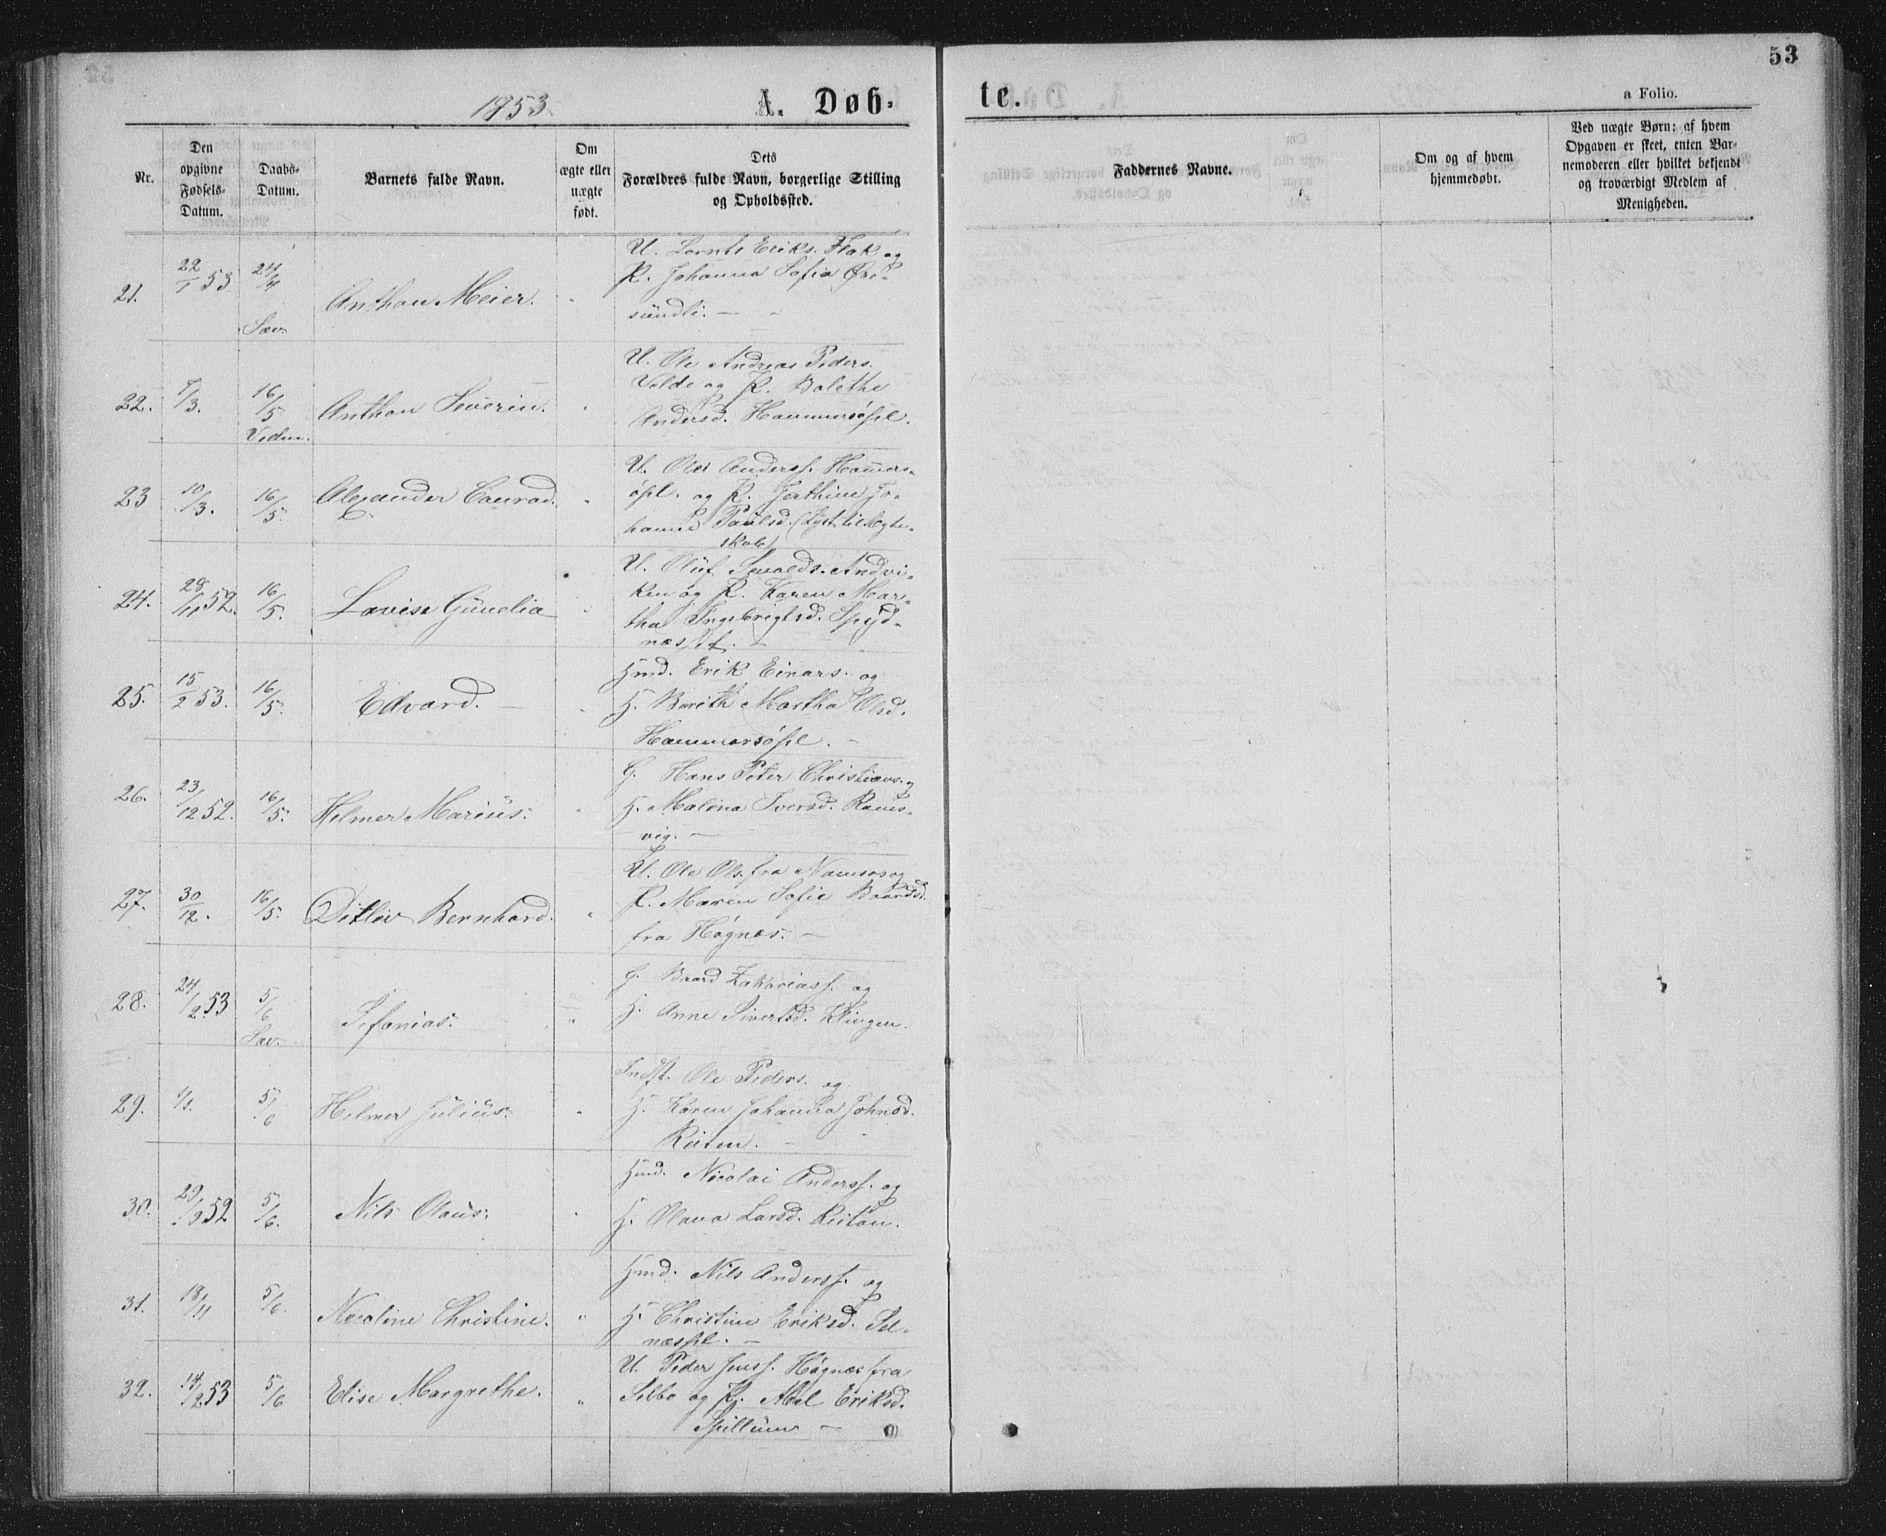 53
1853.
A. Døb-
te.
a Folio.
Nr.
Den
opgivne
Fødsels-
Datum.
Daabs-
Datum.
Barnets fulde Navn.
Om
ægte eller
uægte
født.
Dets
Forældres fulde Navn, borgerlige Stilling
og Opholdssted.
Faddernes Navne.
Om og af hvem
hjemmedøbt.
Ved uægte Børn: af hvem
Opgaven er skeet, enten Bar-
nemoderen eller hvilket bekjendt
og troværdigt Medlem af
Menigheden.
21. 22/1 53. 24/4 Anthon Meier.
U. Lornts Eriks. Flak og
P. Johanna Sofia
22. 7/3. 16/5 Anthon Severin.
U. Ole Andreas Peders.
og P. Bolethe
Andersd. Hammersøpl.
23 10/3. 16/5. Alexander Conrad.
U. Ole Anderss. Hamers-
øpl. og P. Jo-
hanna Paulsd. (Lyst til Ægte-
skab)
24. 28/11 52. 16/5. Lovise Gunelia
U. Oluf Andvi-
ken og P. Karen Mar-
tha Ingebrigtsd. Spyd-
næsset.
25. 15/2 53. 16/5. Edvard.
Hmd. Erik Einars. og
H. Berith Martha Olsd.
Hammersøpl.
26. 23/12 52. 16/5. Helmer Marius.
G. Hans Peter Christians. og
H. Malena Iversd. Rams-
vig.
27. 30/12. 16/5. Ditlev Bernhard.
U. Ole Ols. fra Namsos og
P. Maren Sofie Baardsd.
fra Høgnes.
28. 24/2. 53 5/6 Sefanias.
G. Baard Zakariass. og
H. Anne Sivertsd. Klingen.
29. 5/6 Helmer Julius.
Indst. Ole Peders. og
H. Karen Johanna Johnsd.
Reiten.
30. 52 5/6. Nils Olaus.
Hmd. Nicolai Anderss. og
H. Olava Larsd. Reitan.
31. 18/11 5/6. Nicoline Christine.
Hmd. Nils Anderss. og
H. Christine Eriksd. Sel-
næspl.
32. 14/2 53 5/6 Elise Margrethe.
U. Peder Jenss. Høgnes fra
Selbo og P. Eriksd.
Spillum